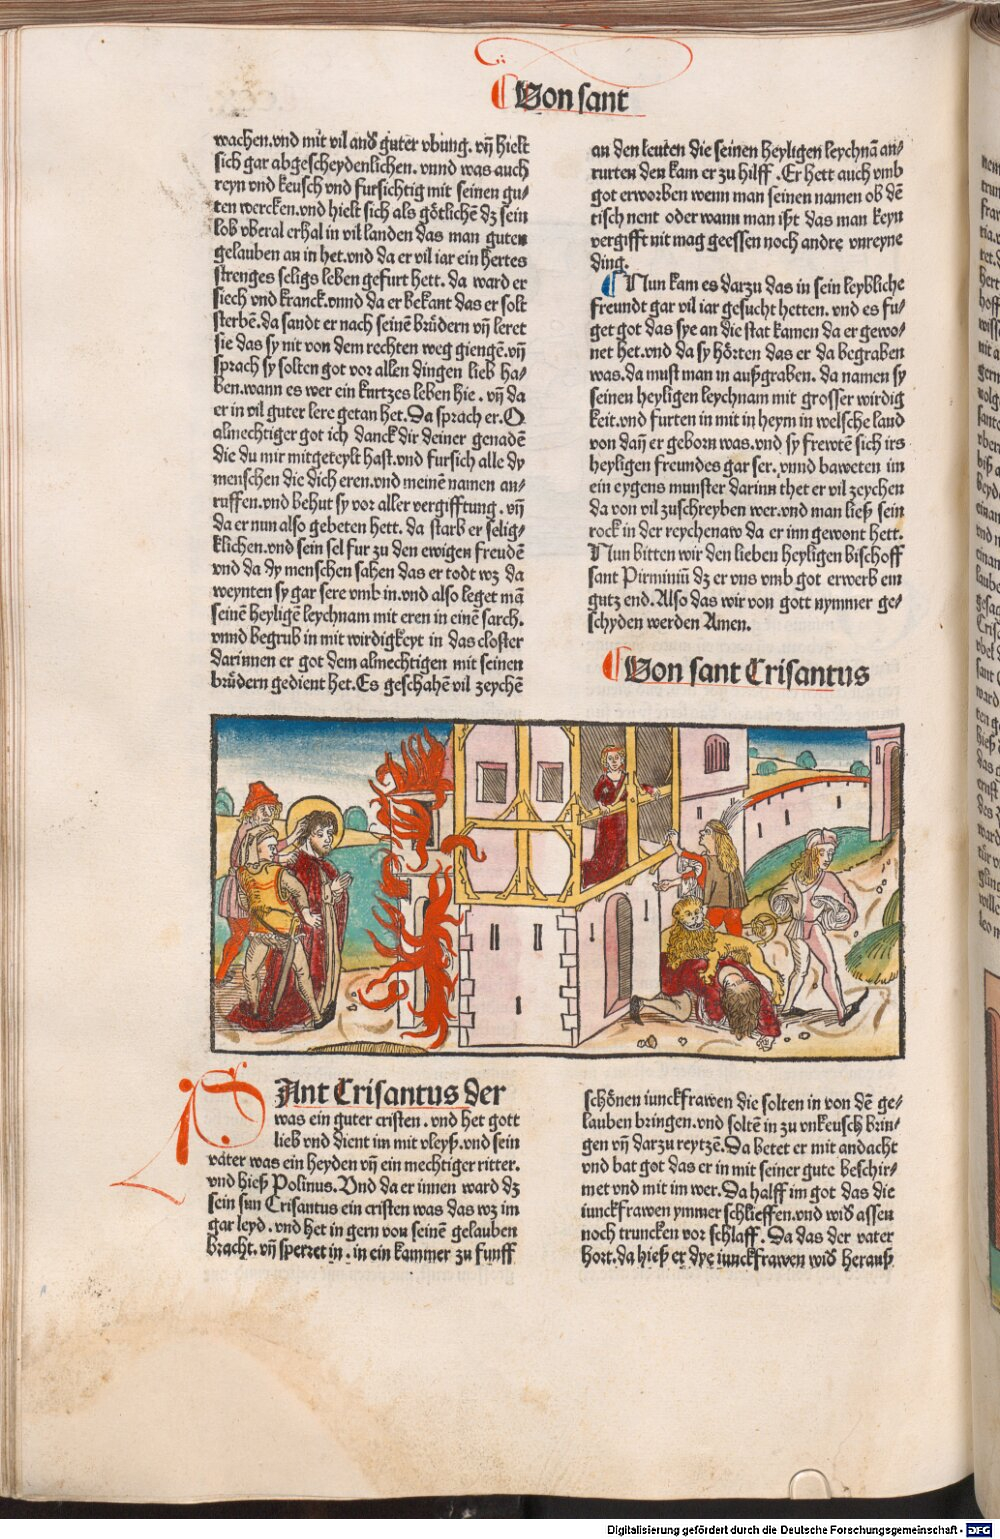 Von sant
wachen.vnd mit vil andˢ guter vbung. vñ hielt
sich gar abgescheydenlichen. vnnd was auch
reyn vnd keusch vnd fursichtig mit seinen gu⸗
ten wercken.vnd hielt sich als götlichē dz sein
lob vberal erhal in vil landen das man guten
gelauben an in het.vnd da er vil iar ein hertes
strenges seligs leben gefurt hett. da ward er
siech vnd kranck.vnnd da er bekant das er solt
sterbē.da sandt er nach seinē brüdern vñ leret
sie das sy nit von dem rechten weg giengē.vñ
sprach sy solten got vor allen dingen lieb ha⸗
ben.wann es wer ein kurtzes leben hie. vñ da
er in vil guter lere getan het.Da sprach er.O
almechtiger got ich danck dir deiner genadē
die du mir mitgeteylt hast.vnd fursich alle dy
menschen die dich eren.vnd meinē namen an⸗
ruffen.vnd behut sy vor aller vergifftung. vñ
da er nun also gebeten hett. da starb er selig⸗
klichen.vnd sein sel fur zu den ewigen freudē
vnd da dy menschen sahen das er todt wz da
weynten sy gar sere vmb in.vnd also leget mā
seinē heyligē leychnam mit eren in einē sarch.
vnnd begrub in mit wirdigkeyt in das closter
darinnen er got dem almechtigen mit seinen
brüdern gedient het.Es geschahē vil zeychē
an den leuten die seinen heyligen leychnā an⸗
rurten den kam er zu hilff. Er hett auch vmb
got erworben wenn man seinen namen ob dē
tisch nent oder wann man ißt das man keyn
vergifft nit mag geessen noch andre vnreyne
ding.
Nun kam es darzu das in sein leybliche
freundt gar vil iar gesucht hetten. vnd es fu⸗
get got das sye an die stat kamen da er gewo⸗
net het.vnd da sy hörten das er da begraben
was.da must man in außgraben. da namen sy
seinen heyligen leychnam mit grosser wirdig
keit.vnd furten in mit in heym in welsche land
von dañ er geborn was.vnd sy frewtē sich irs
heyligen freundes gar ser. vnnd baweten im
ein eygens munster darinn thet er vil zeychen
da von vil zuschreyben wer.vnd man ließ sein
rock in der reychenaw da er inn gewont hett.
Nun bitten wir den lieben heyligen bischoff
sant Pirminiū dz er vns vmb got erwerb ein
gutz end. Also das wir von gott nymmer ge⸗
schyden werden Amen.
Von sant Crisantus
SAnt Crisantus der
was ein guter cristen. vnd het gott
lieb vnd dient im mit vleyß.vnd sein
vater was ein heyden vñ ein mechtiger ritter.
vnd hieß Polinus. Vnd da er innen ward dz
sein sun Crisantus ein cristen was das wz im
gar leyd. vnd het in gern von seinē gelauben
bracht. vñ sperret in. in ein kammer zu funff
schönen iunckfrawen die solten in von dē ge⸗
lauben bringen.vnd soltē in zu vnkeusch brin⸗
gen vñ darzu reytzē.Da betet er mit andacht
vnd bat got das er in mit seiner gute beschir⸗
met vnd mit im wer. Da halff im got das die
iunckfrawen ymmer schlieffen.vnd widˢ assen
noch truncken vor schlaff. Da das der vater
hort.da hieß er dye iunckfrawen widˢ herauß
Digitalisierung gefördert durch die Deutsche Forschungsgemeinschaft - DFG